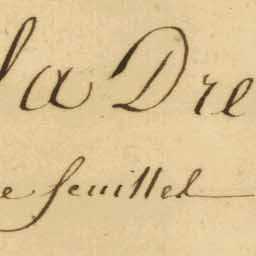 la Dre
e feuillet